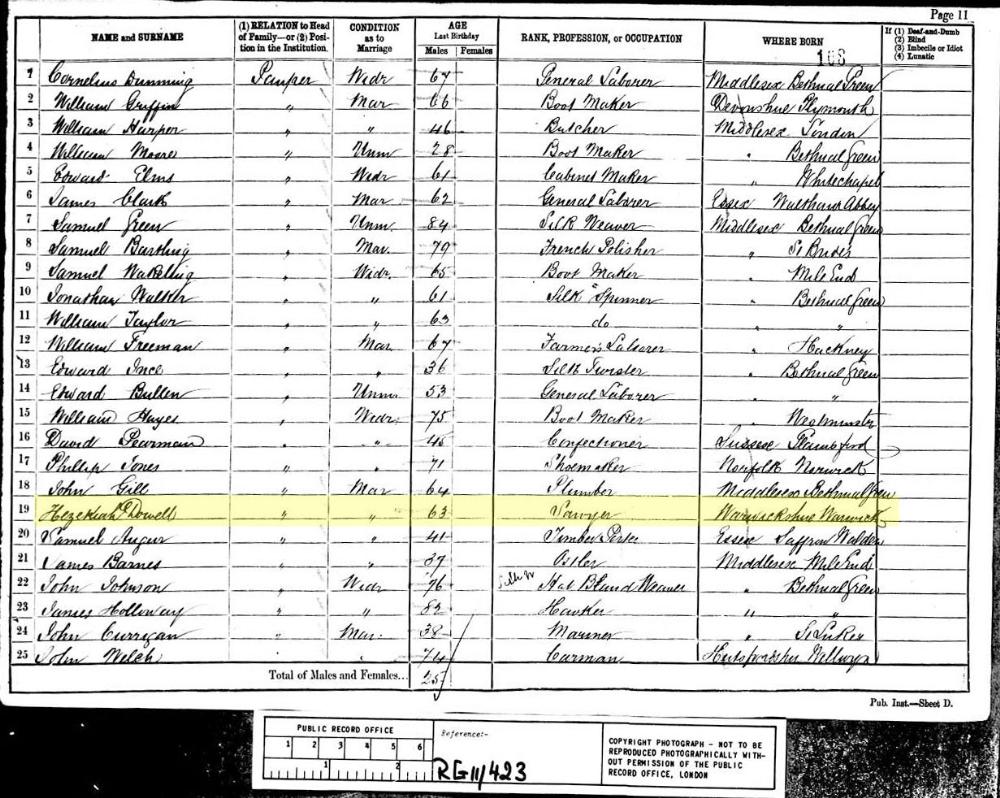 Page 11
NAME and SURNAME (1) RELATION to Head of Family—or (2) Position in the Institution. CONDITION as to Marriage AGE Last Birthday Males Females RANK, PROFESSION, or OCCUPATION WHERE BORN If (1) Deaf-and-Dumb (2) Blind (3) Imbecile or Idiot (4) Lunatic
1 Cornelius Dunning Pauper Widr 67 General Laborer Middlesex Bethnal Green
2 William Griffin " Mar 66 Boot Maker Devonshire Plymouth
3 William Harper " " 46 Butcher Middlesex London
4 William Moore " Unm 28 Boot Maker " Bethnal Green
5 Edward Elms " Widr 61 Cabinet Maker " Whitechapel
6 James Clark " Mar 62 General Laborer Essex Waltham Abbey
7 Samuel Green " Unm 84 Silk Weaver Middlesex Bethnal Green
8 Samuel " Mar 79 French Polisher " St Brides
9 Samuel Wakeling " Widr 65 Boot Maker " Mile End
10 Jonathan Walker " " 61 Silk Spinner " Bethnal Green
11 William Taylor " " 63 do " "
12 William Freeman " Mar 67 Farmers Laborer " Hackney
13 Edward Ince " " 36 Silk Twister " Bethnal Green
14 Edward Bullen " Unm 53 General Laborer " "
15 William Hayes " Widr 75 Boot Maker " Westminster
16 David Pearman " " 45 Confectioner Sussex
17 Phillip Jones " " 71 Shoemaker Norfolk Norwick
18 John Gill " Mar 64 Plumber Middlesex Bethnal Green
19 Hezekiah Dowell " " 63 Sawyer Warwickshire Warwick
20 Samuel Auger " " 41 Timber Essex Saffron Walden
21 James Barnes " " 37 Ostler Middlesex Mile End
22 John Johnson " Widr 76 Silk W Weaver " Bethnal Green
23 James Holloway " " 82 Hawker " "
24 John Currigan " Mar 38 Mariner " St Lukes
25 John Welch " " 74 Carman Welwyn
Total of Males and Females... 25
Pub. Inst.—Sheet D.
PUBLIC RECORD OFFICE
1 2 3 4 5 6
1 2
Reference:-
RG 11/423
COPYRIGHT PHOTOGRAPH - NOT TO BE
REPRODUCED PHOTOGRAPHICALLY WITH-
OUT PERMISSION OF THE PUBLIC
RECORD OFFICE, LONDON